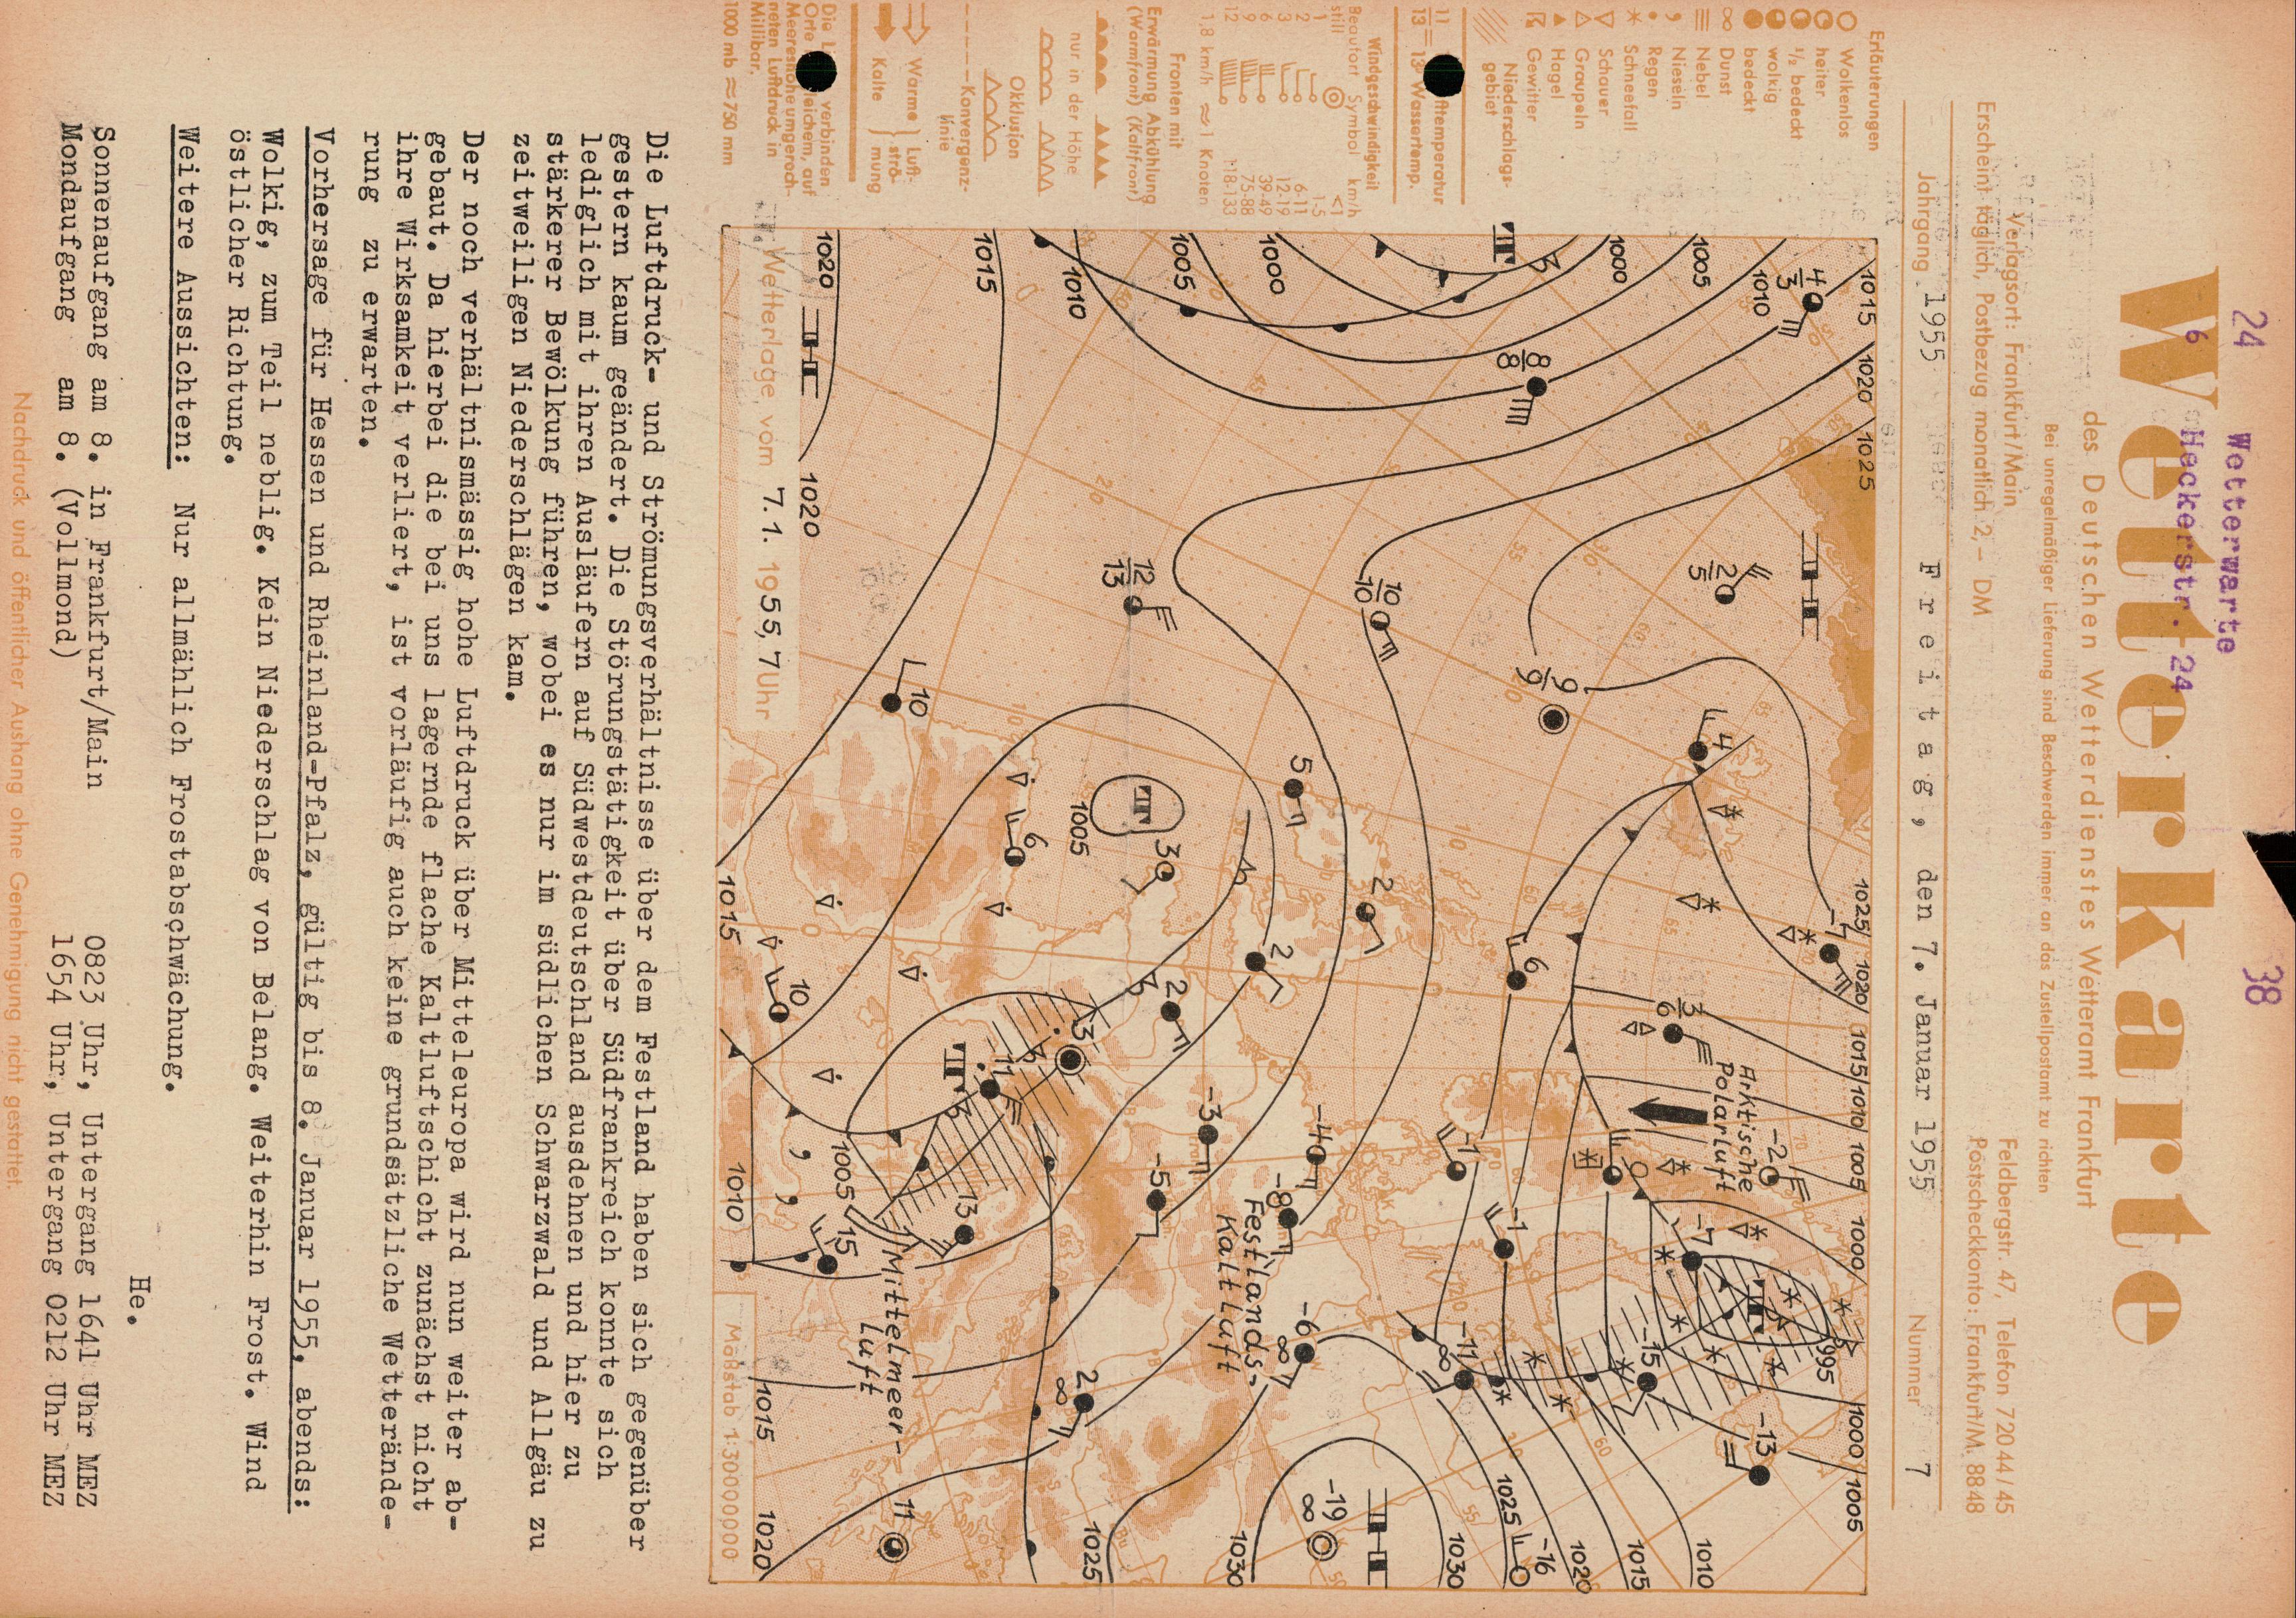 24
Wetterwarte
38
6
Heckerstr. 24
Wetterkarte
des Deutschen Wetterdienstes Wetteramt Frankfurt
Bei unregelmäßiger Lieferung sind Beschwerden immer an das Zustellpostamt zu richten
Verlagsort: Frankfurt/Main
Feldbergstr. 47, Telefon 72044/45
Erscheint täglich, Postbezug monatlich 2,- DM
Postscheckkonto: Frankfurt/M. 8848
Jahrgang 1955 Freitag, den 7. Januar 1955 Nummer 7
Erläuterungen
Wolkenlos
heiter
½ bedeckt
wolkig
bedeckt
Dunst
Nebel
Nieseln
Regen
Schneefall
Schauer
Graupeln
Hagel
Gewitter
Niederschlags-
gebiet
11
13 = 13 Wassertemp.
Windgeschwindigkeit
Beaufort Symbol km/h
still <1
1 1-5
2 6-11
3 12-19
6 39-49
9 75-88
12 118-133
1,8 km/h ≈ 1 Knoten
Fronten mit
Erwärmung Abkühlung
(Warmfront) (Kaltfront)
nur in der Höhe
Okklusion
Konvergenz-
linie
Warme } Luft-
Kalte } strö-
mung
verbinden
Orte
auf
Meereshöhe umgerech-
neten Luftdruck in
Millibar.
1000 mb ≈ 750 mm
1015 1020 1025 1025 1020 1015 1010 1005 1000 1000 1005
1010 1005 1000 995
4
3
2
5
-1
3
6
Arktische
Polarluft
-2
-7
-13
-15
T
8
8
9
9
4
6
-1
-1
-11
1025
-16
1020
1015
1010
1000
1005
10
10
5
2
-4
-8
Festlands-
Kaltluft
-6
-19
1030
1030
1010
12
13
T
1005
3
2
2
-3
-5
2
1025
1015
10
6
3
11
T
13
1005
15
Mittelmeer-
Luft
11
1020
1020
10
1015
1010
1015
1020
Wetterlage vom 7.1. 1955, 7 Uhr
Maßstab 1:30000000
Die Luftdruck- und Strömungsverhältnisse über dem Festland haben sich gegenüber
gestern kaum geändert. Die Störungstätigkeit über Südfrankreich konnte sich
lediglich mit ihren Ausläufern auf Südwestdeutschland ausdehnen und hier zu
stärkerer Bewölkung führen, wobei es nur im südlichen Schwarzwald und Allgäu zu
zeitweiligen Niederschlägen kam.
Der noch verhältnismässig hohe Luftdruck über Mitteleuropa wird nun weiter ab-
gebaut. Da hierbei die bei uns lagernde flache Kaltluftschicht zunächst nicht
ihre Wirksamkeit verliert, ist vorläufig auch keine grundsätzliche Wetterände-
rung zu erwarten.
Vorhersage für Hessen und Rheinland-Pfalz, gültig bis 8. Januar 1955, abends:
Wolkig, zum Teil neblig. Kein Niederschlag von Belang. Weiterhin Frost. Wind
östlicher Richtung.
Weitere Aussichten: Nur allmählich Frostabschwächung.
He.
Sonnenaufgang am 8. in Frankfurt/Main 0823 Uhr, Untergang 1641 Uhr MEZ
Mondaufgang am 8. (Vollmond) 1654 Uhr, Untergang 0212 Uhr MEZ
Nachdruck und öffentlicher Aushang ohne Genehmigung nicht gestattet.